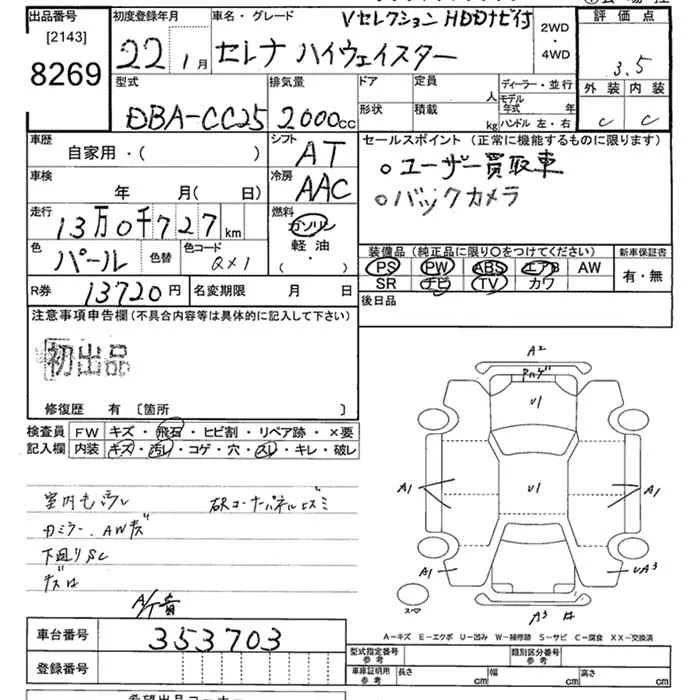 出品番号
[2143]
8269
初度登録年月
22 1月
車名・グレード
Vセレクション HDDナビ付
セレナ ハイウェイスター
2WD
・
4WD
評価点
3.5
外装 内装
C C
型式
DBA-CC25
排気量
2000cc
ドア
定員
人
形状
積載
kg
ディーラー・並行
モデル年式 年
ハンドル 左・右
車歴
自家用・( )
シフト
AT
車検
年 月( 日)
冷房
AAC
走行
13万0千727km
燃料
ガソリン
軽油・
( ・ )
色
パール
色替
色コード
QX1
R券
13720円
名変期限 月 日
セールスポイント(正常に機能するものに限ります)
○ユーザー買取車
○バックカメラ
装備品(純正品に限り○をつけてください)
PS PW ABS エアB AW
SR ナビ TV カワ
新車保証書
有・無
後日品
注意事項申告欄(不具合内容等は具体的に記入して下さい)
初出品
修復歴 有 〔箇所 〕
検査員
記入欄
FW キズ・飛石・ヒビ割・リペア跡・×要
内装 キズ・汚レ・コゲ・穴・スレ・キレ・破レ
下廻りSC
車台番号
353703
登録番号
A2
U1
U1
A1
A1
A1
UA3
A3
スペア
A-キズ E-エクボ U-凹み W-補修跡 S-サビ C-腐食 XX-交換済
型式指定番号
参考
類別区分番号
参考
車庫証明用
参考
長さ cm
幅 cm
高さ cm